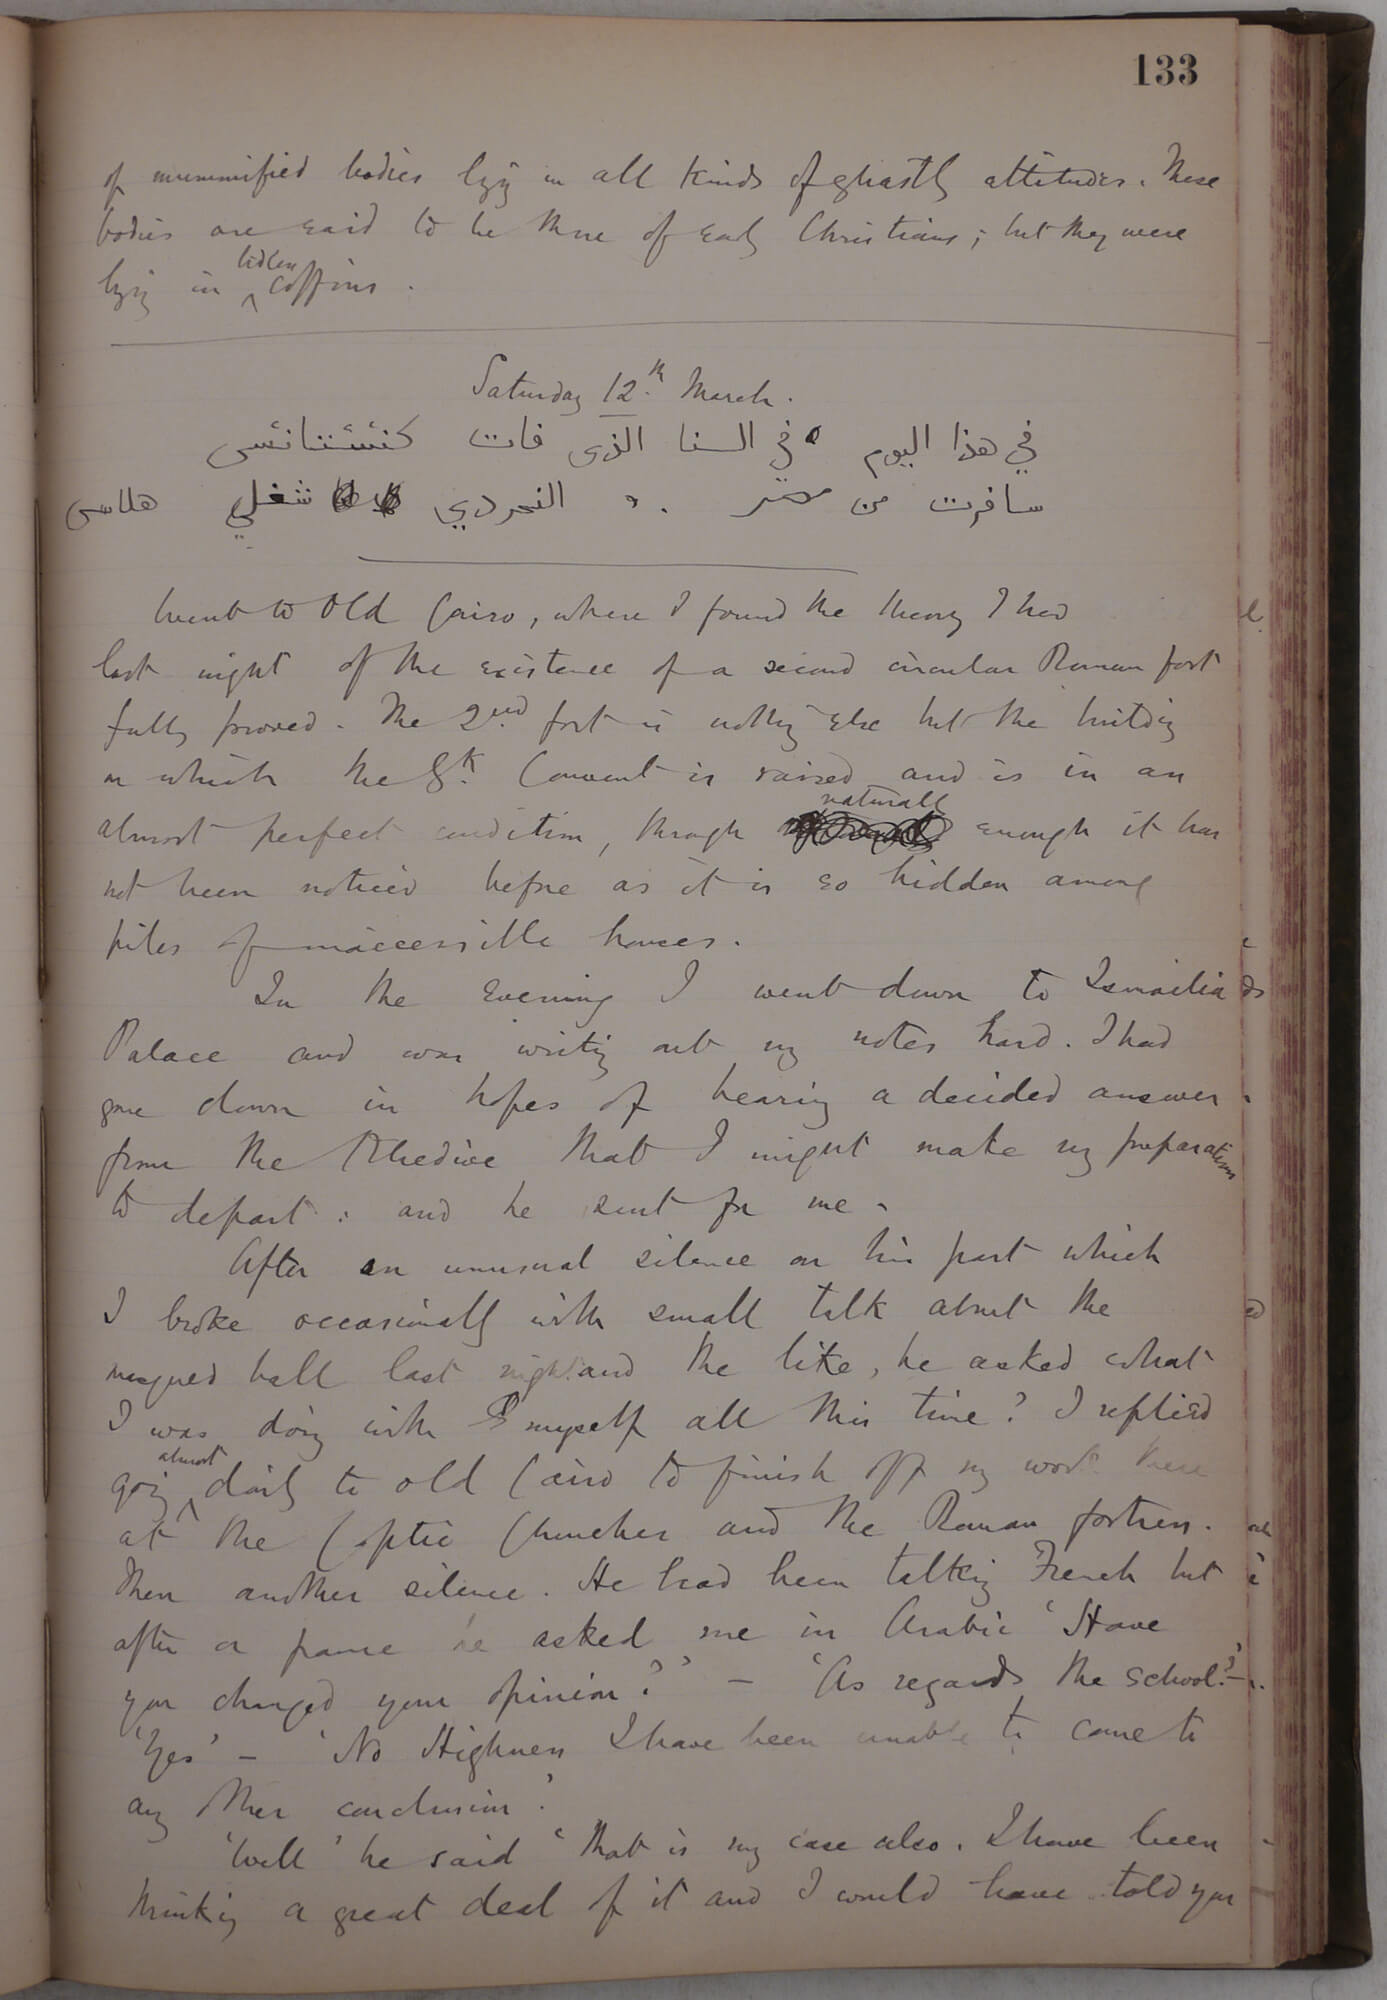 133
of mummified bodies lyig in all kinds of ghastly attitudes. These
bodies are said to be those of early Christians; but they were
lyig in lidless coffins.
Saturday 12th March.
في هذا اليوم في السنا الذى فات
سافرت من مصر شغلي
Went to Old Cairo, where I found the theory I had
last night of the existence of a second circular Roman fort
fully proved. The 2nd fort is nothing else but the building
on which the Gk. Convent is raised and is in an
almost perfect condition, though naturally enough it has
not been noticed before as it is so hidden among
piles of inaccessible houses.
In the evening I went down to Ismailia
Palace and was writing out my notes hard. I had
gone down in hopes of hearing a decided answer
from the Khedive that I might make my preparations
to depart: and he sent for me.
After an unusual silence on his part which
I broke occasionally with small talk about the
masqued ball last night and the like, he asked what
I was doing with myself all this time? I replied
going almost daily to old Cairo to finish off my work there
at the Coptic Churches and the Roman fortress.
Then another silence. He had been talking French but
after a pause he asked me in Arabic 'Have
you changed your opinion?' – 'As regards the School?' –
'Yes' – 'No Highness I have been unable to come to
any other conclusion.'
'Well' he said 'that is my case also. I have been
thinking a great deal of it and I would have told you